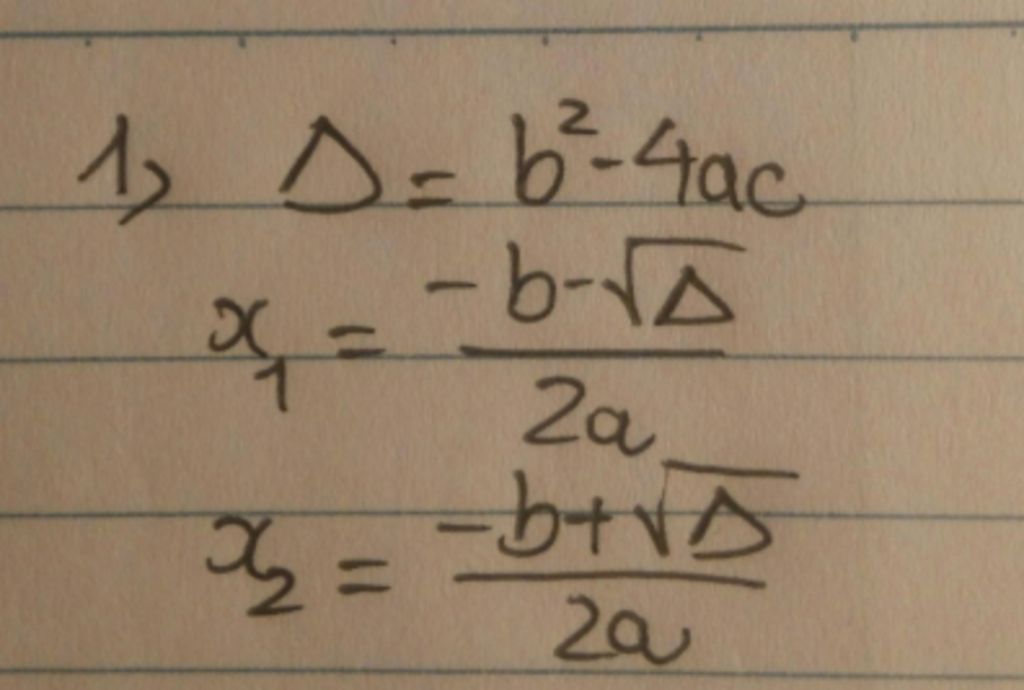 1) Δ = b² - 4ac
x₁ = (-b - √Δ) / 2a
x₂ = (-b + √Δ) / 2a